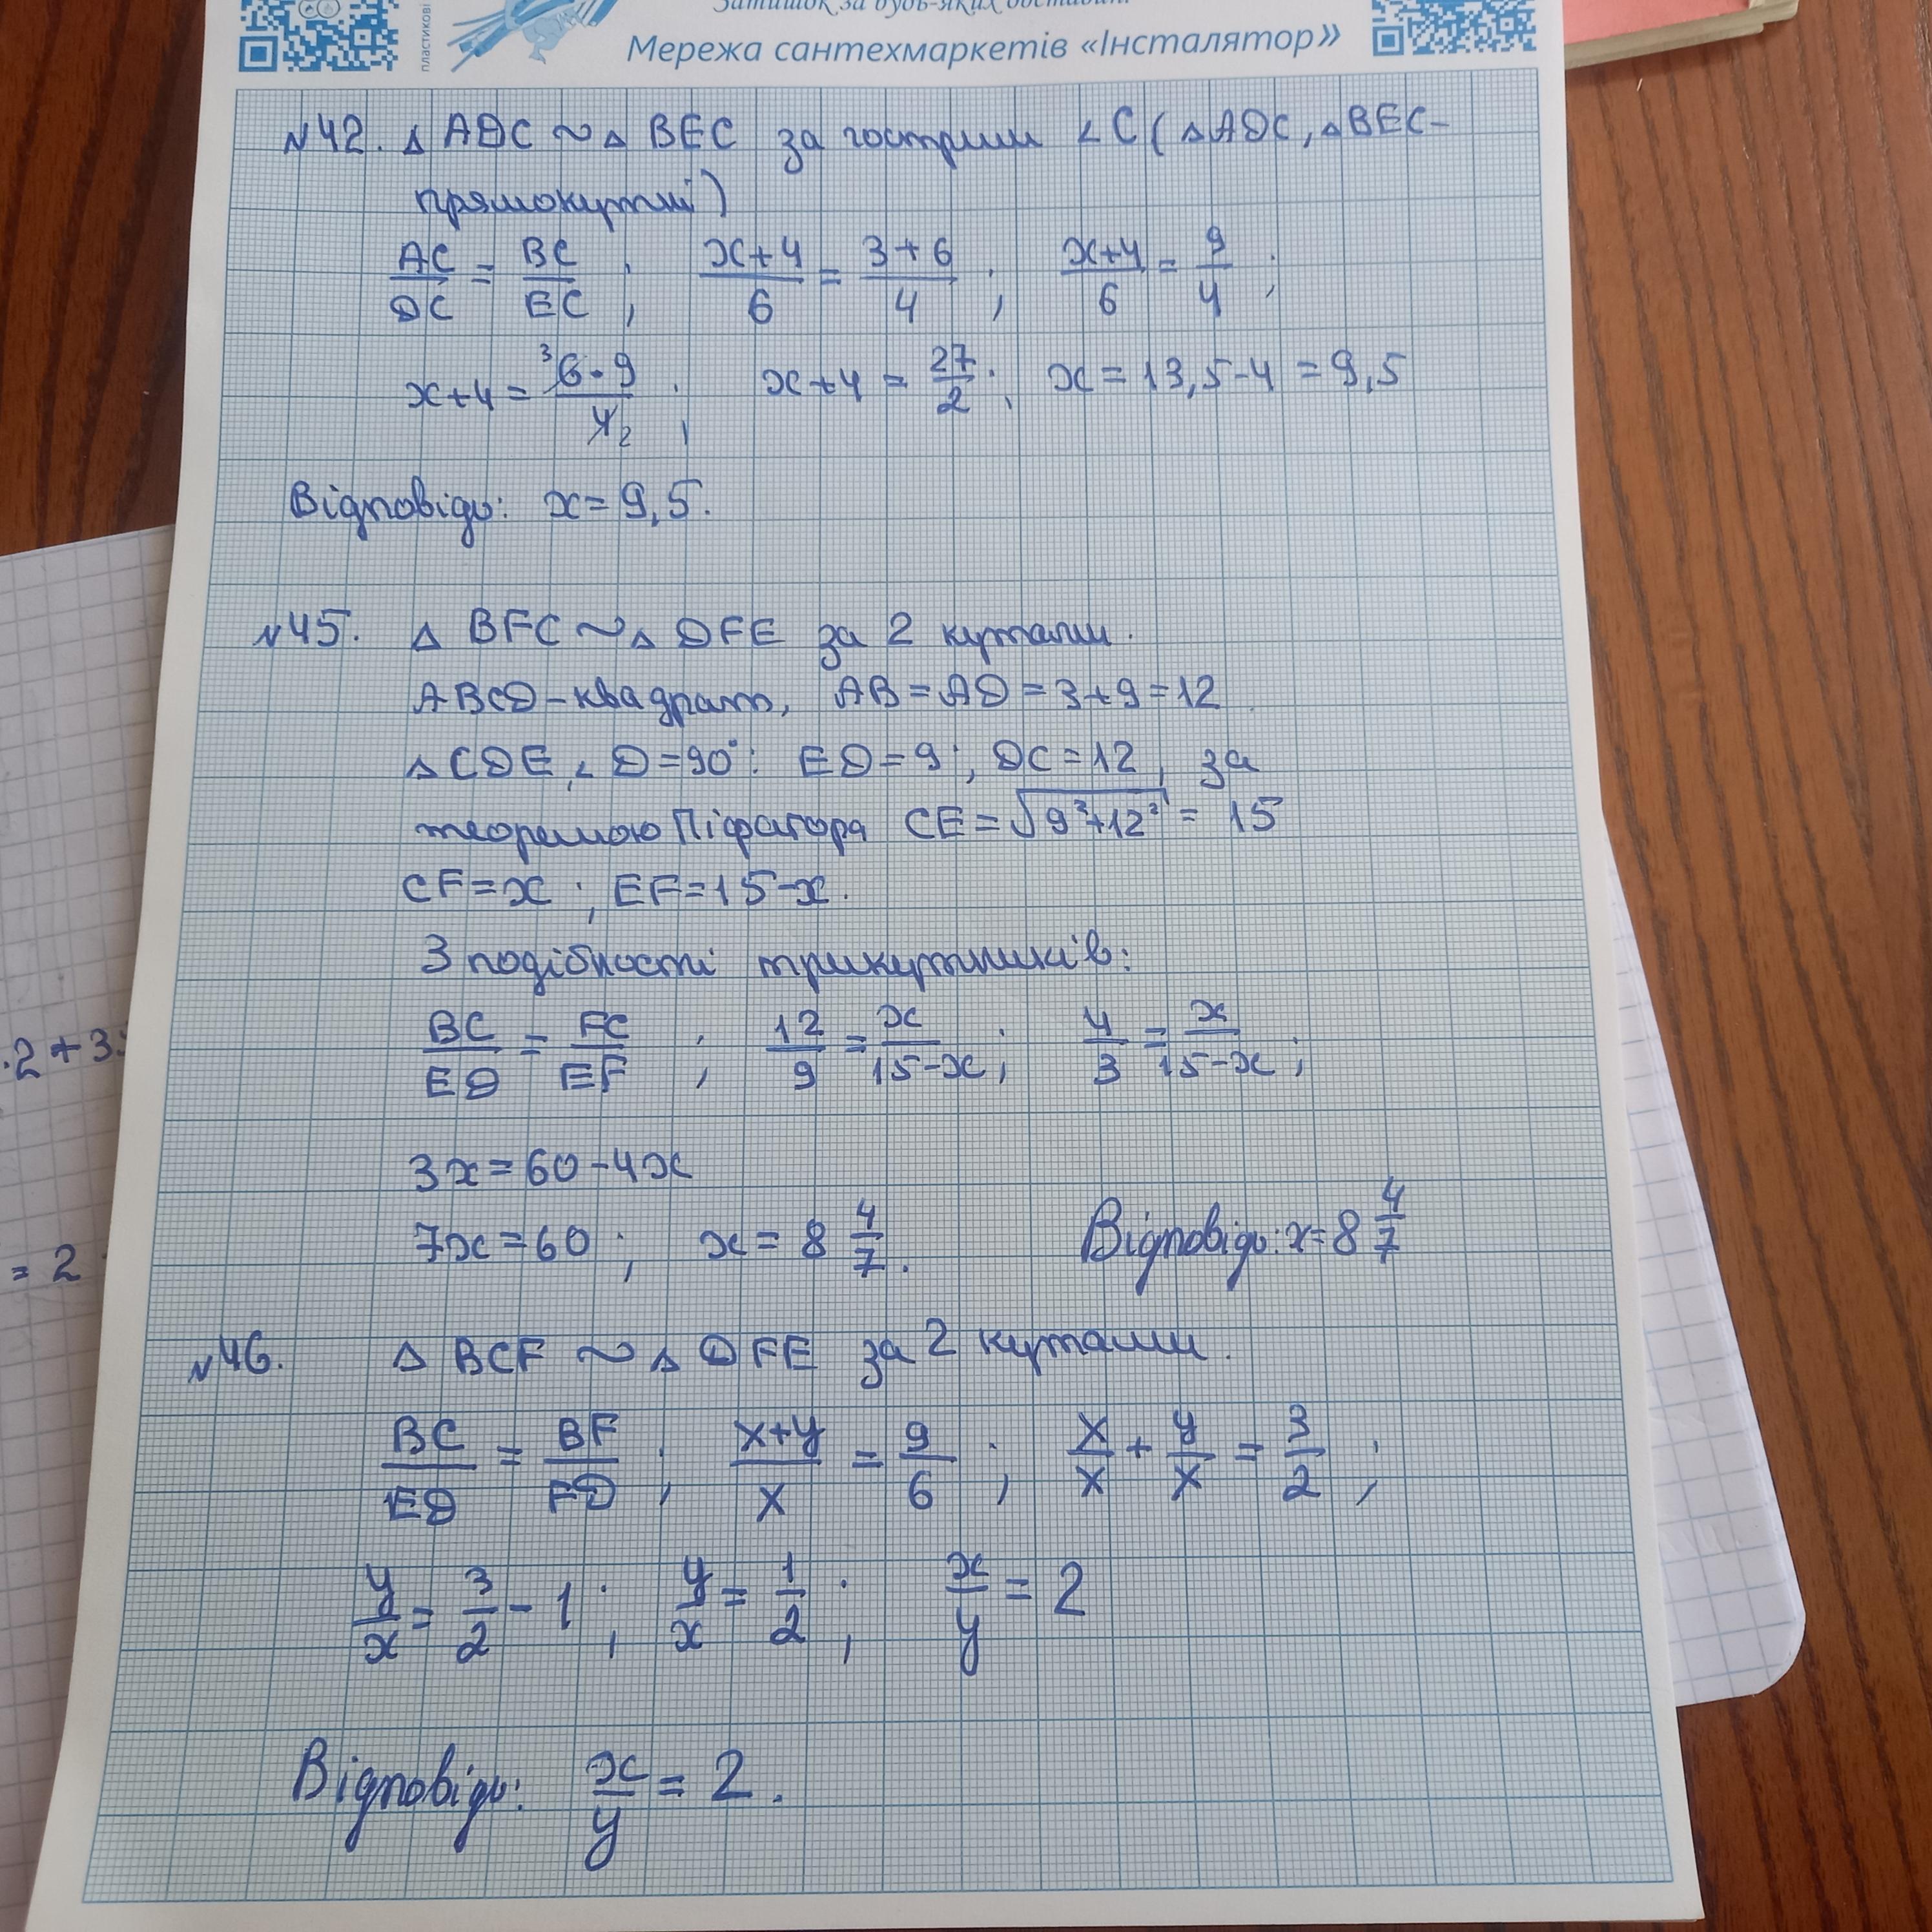 пластикові
Затишок за будь-яких обставин
Мережа сантехмаркетів «Інсталятор»
№42. △ ADC ~ △ BEC за гострим ∠C (△ADC, △BEC –
прямокутні)
AC/DC = BC/EC ; x+4/6 = 3+6/4 ; x+4/6 = 9/4 ;
x+4 = 6·9/4 ; x+4 = 27/2 ; x = 13,5-4 = 9,5
Відповідь: x = 9,5.
№45. △ BFC ~ △ DFE за 2 кутами.
ABCD – квадрат, AB = AD = 3+9 = 12
△CDE, ∠D = 90°: ED = 9; DC = 12, за
теоремою Піфагора CE = √9²+12² = 15
CF = x ; EF = 15-x.
З подібності трикутників:
BC/ED = FC/EF ; 12/9 = x/15-x ; 4/3 = x/15-x ;
3x = 60-4x
7x = 60 ; x = 8 4/7. Відповідь: x = 8 4/7
№46. △ BCF ~ △ DFE за 2 кутами.
BC/ED = BF/FD ; x+y/x = 9/6 ; x/x + y/x = 3/2 ;
y/x = 3/2 - 1 ; y/x = 1/2 ; x/y = 2
Відповідь: x/y = 2.
·2+3
= 2